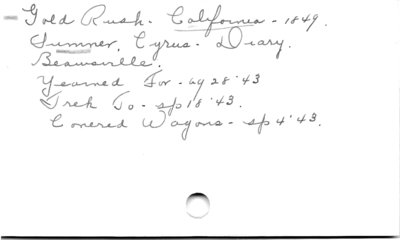 Gold Rush - California - 1849.
Sumner, Cyrus - Diary.
Beamsville.
Yearned For - ag 28 '43
Trek To - sp 18 '43.
Covered Wagons - sp 4 '43.